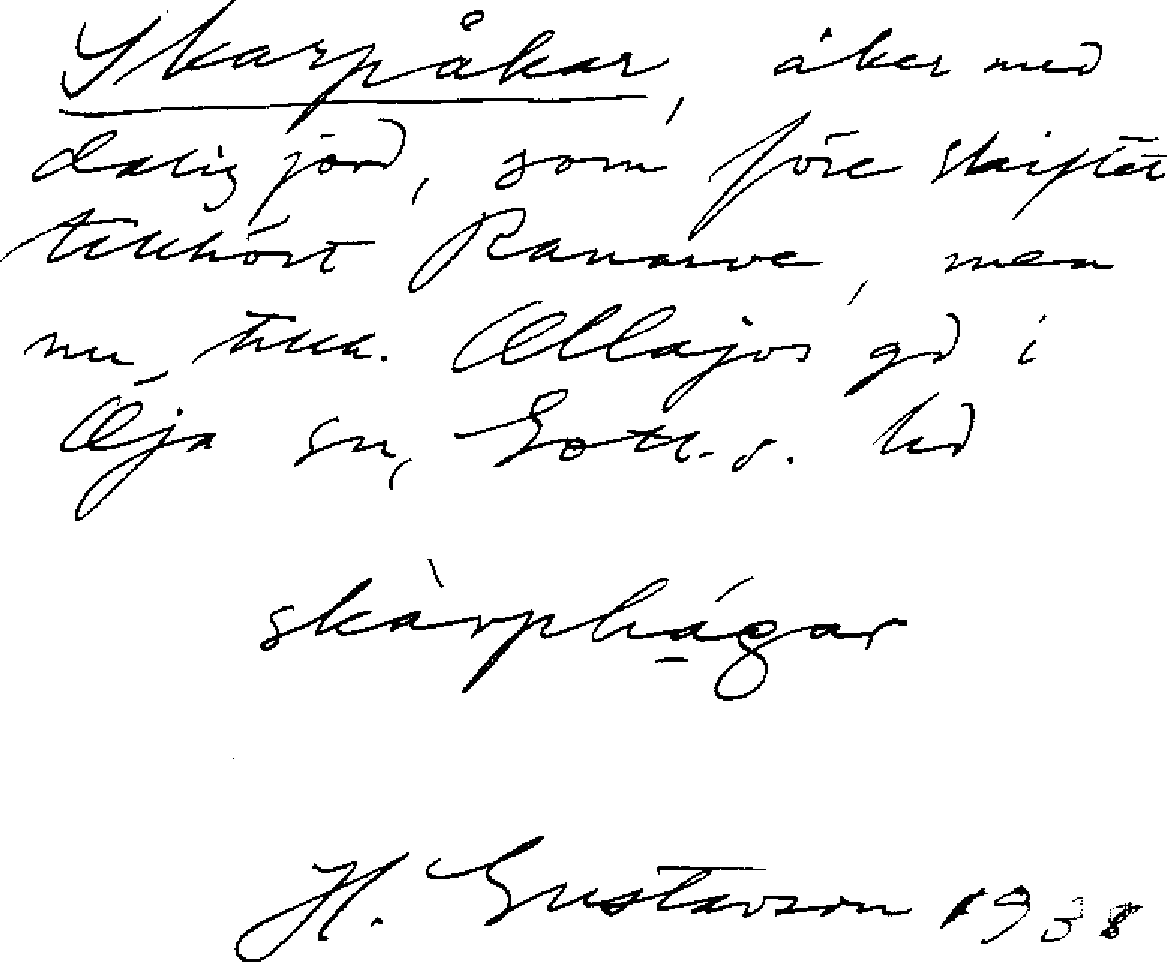 Skarpåkar, åker med
dålig jord, som före skiftet
tillhört Ranarve, men
nu tillh. Ollajvs gd i
Öja sn, Gotl. s. hd
skàrphágar
H. Gustavson 1938